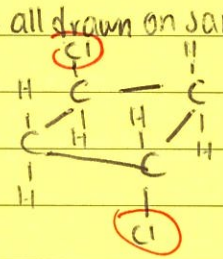 all drawn on sa
Cl H
H C C
H
C H H
C
H
Cl